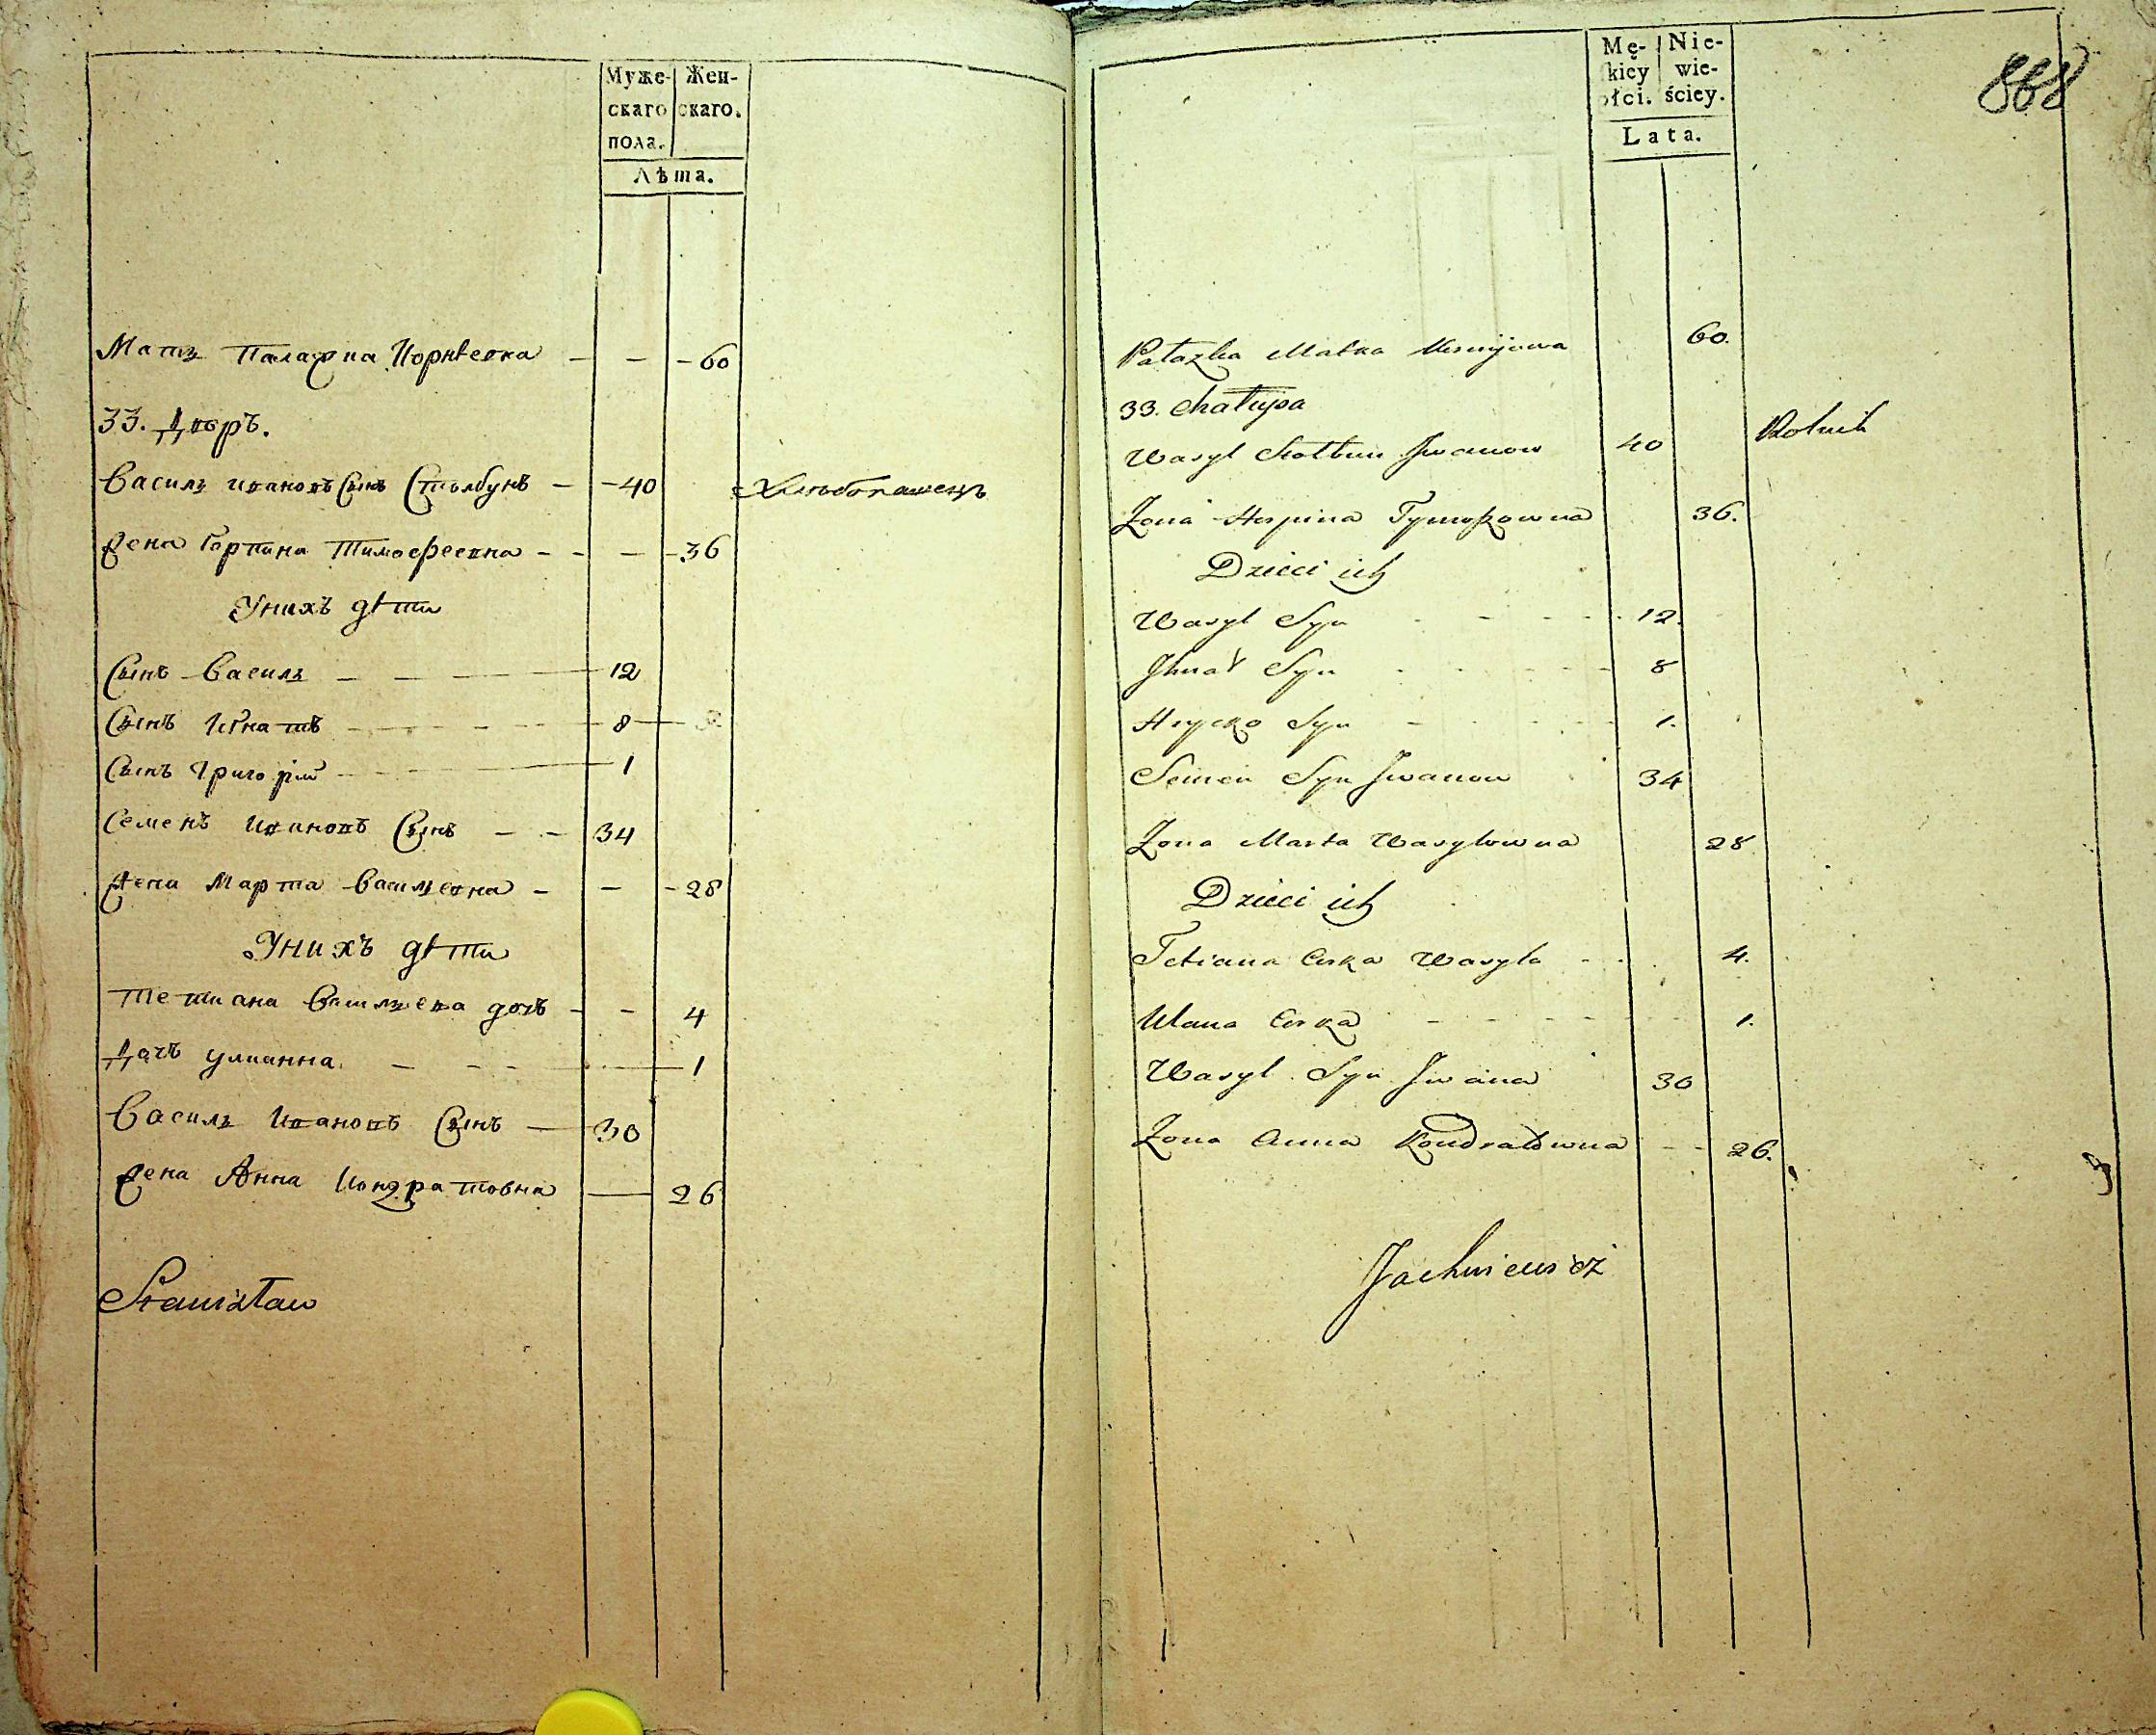 Муже- Жен-
скаго скаго.
пола.
Лѣта.
Мать Палажка Корнѣевна - - - 60
33. Дворъ.
Василь Ивановъ Сынъ Столбунъ - - 40 Хлѣбопашецъ
Жена Горпина Тимофеевна - - - - 36
У нихъ дѣти
Сынъ Василь - - - 12
Сынъ Игнатъ - - - 8
Сынъ Григорій - - 1
Семенъ Ивановъ Сынъ - - 34
Жена Марта Васильевна - - - 28
У нихъ дѣти
Тетиана Васильева дочь - - 4
Дочь Улианна - - - 1
Василь Ивановъ Сынъ - 30
Жена Анна Кондратовна - 26
Stanisław
868
Mę- Nie-
kiey wie-
płci. ściey.
Lata.
Pałazka Matka 60.
33. Chałupa
Wasyl Stołbun Jwanow 40 Rolnik
Żona Horpina Tymoszowna 36.
Dzieci ich
Wasyl Syn - - - - 12.
Jhnat Syn - - - - 8
Hrycko Syn - - - 1.
Semen Syn Jwanow 34
Żona Marta Wasylowna 28
Dzieci ich
Tetiana Corka Wasyla - - 4.
Ulana Corka - - - - 1.
Wasyl Syn Jwana 30
Żona Anna Kondratowna - - 26.
Jachniewicz